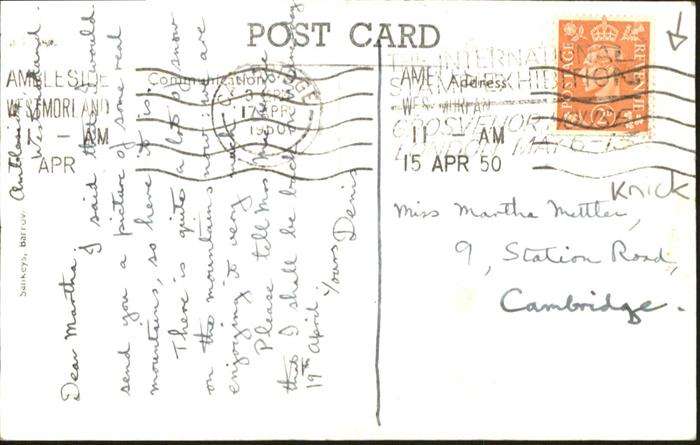 POST CARD
Communication
Address
AMBLESIDE
WESTMORLAND
11 - AM
APR
17 APR
1950
AMBLESIDE
WESTMORLAND
11 - AM
15 APR 50
THE INTERNATIONAL
STAMP EXHIBITION
GROSVENOR HOUSE
LONDON MAY 6-13
POSTAGE
REVENUE
2D
Knick
Miss Martha Mettler,
9, Station Road,
Cambridge.
Ambleside,
Westmorland.
Dear Martha,
I said that I would
send you a picture of some real
mountains, so here it is.
There is quite a lot of snow
on the mountains now: we are
enjoying it very much.
Please tell Mrs
that I shall be back on Wednesday
19th April
Yours,
Denis
Sankeys, Barrow.